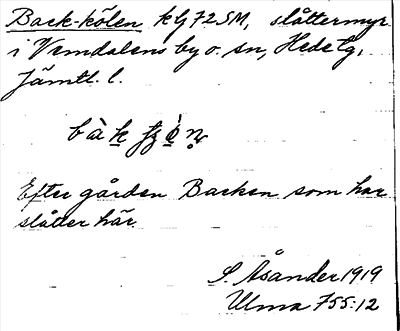 Back-kölen kG725M, slåttermyr
i Vemdalens by o. sn, Hede tg,
Jämtl. l.
Efter gården Backen som har
slåtter här.
S. Åsander 1919
Ulma 755:12